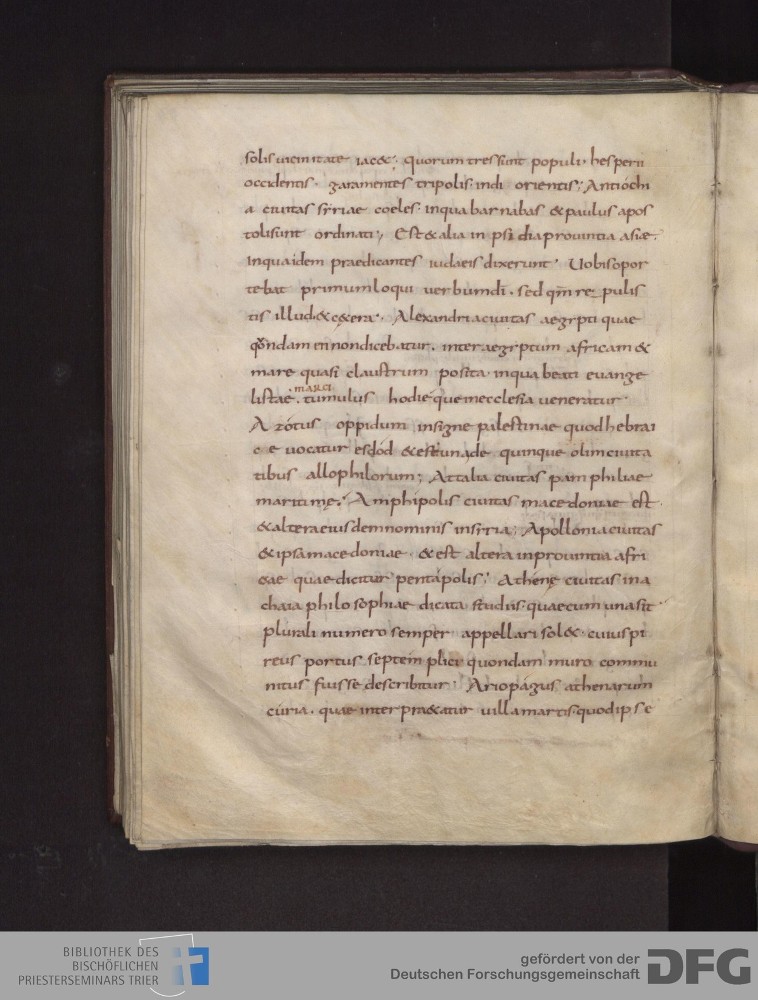 solis uicinitate iac&; quorum tres sunt populi hesperii
occidentis. garamentes tripolis. indi orientis; Antiochi
a ciuitas syriae coeles. in qua barnabas & paulus apos
toli sunt ordinati; Est & alia in psidia prouintia asiae.
In qua idem praedicantes iudaeis dixerunt. Uobis opor
tebat primum loqui uerbum di. sed qm̄ repulis
tis illud. & c&era. Alexandria ciuitas aegypti quae
qondam en non dicebatur. inter aegyptum africam &
mare quasi claustrum posita. in qua beati euange
marci
listae. tumulus hodieque in ecclesia ueneratur.
Azótus oppidum insigne palestinae quod hebrai
ce uocatur esdód & est una de quinque olim ciuita
tibus allophilorum; Attalia ciuitas pamphiliae
maritimę; Amphipolis ciuitas macedoniae est.
& altera eiusdem nominis in syria; Apollonia ciuitas
& ipsa macedoniae. & est altera in prouintia afri
cae quae dicitur pentápolis; Athenę ciuitas in a
chaia philosophiae dicata studiis. quae cum una sit
plurali numero semper appellari sol&. cuius pi
reus portus septem plici quondam muro commu
nitus fuisse describitur; Ariopágus athenarum
cúria. quae interpra&atur uilla martis. quod ipse
BIBLIOTHEK DES
BISCHÖFLICHEN
PRIESTERSEMINARS TRIER
gefördert von der
Deutschen Forschungsgemeinschaft
DFG